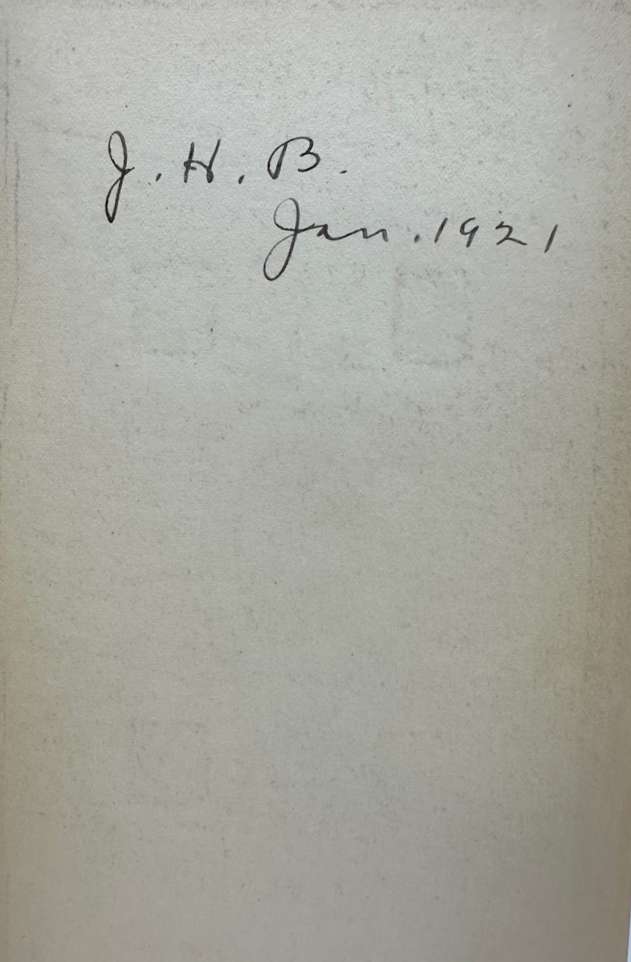 J. H. B.
Jan. 1921